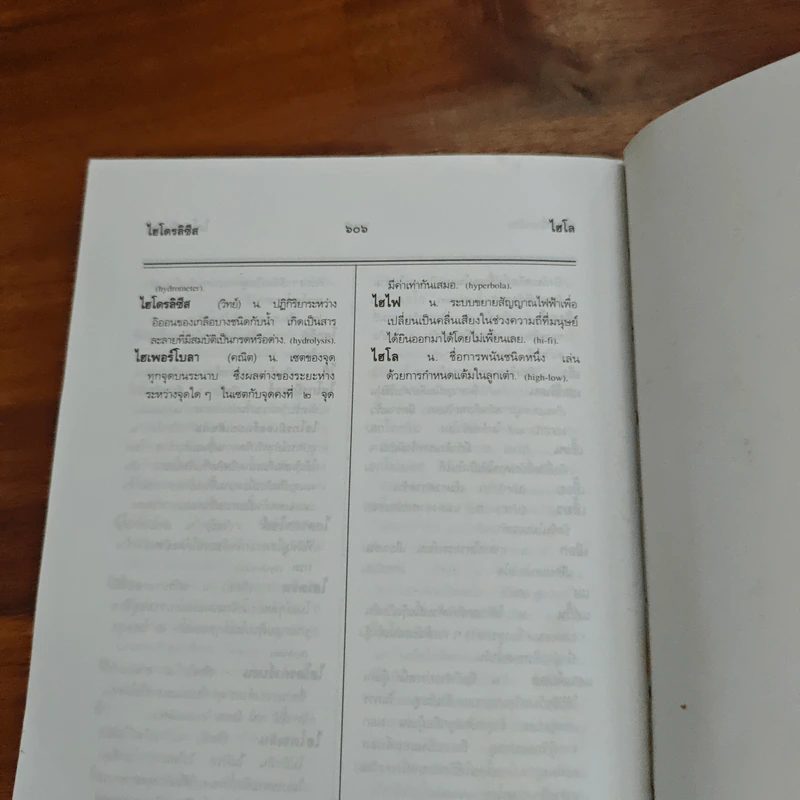 ไฮโดรลิซีส ๖๐๖ ไฮโล
(hydrometer).
ไฮโดรลิซีส (วิทย์) น. ปฏิกิริยาระหว่าง
อิออนของเกลือบางชนิดกับน้ำ เกิดเป็นสาร
ละลายที่มีสมบัติเป็นกรดหรือด่าง. (hydrolysis).
ไฮเพอร์โบลา (คณิต) น. เซตของจุด
ทุกจุดบนระนาบ ซึ่งผลต่างของระยะห่าง
ระหว่างจุดใด ๆ ในเซตกับจุดคงที่ ๒ จุด
มีค่าเท่ากันเสมอ. (hyperbola).
ไฮไฟ น. ระบบขยายสัญญาณไฟฟ้าเพื่อ
เปลี่ยนเป็นคลื่นเสียงในช่วงความถี่ที่มนุษย์
ได้ยินออกมาได้โดยไม่เพี้ยนเลย. (hi-fi).
ไฮโล น. ชื่อการพนันชนิดหนึ่ง เล่น
ด้วยการกำหนดแต้มในลูกเต๋า. (high-low).